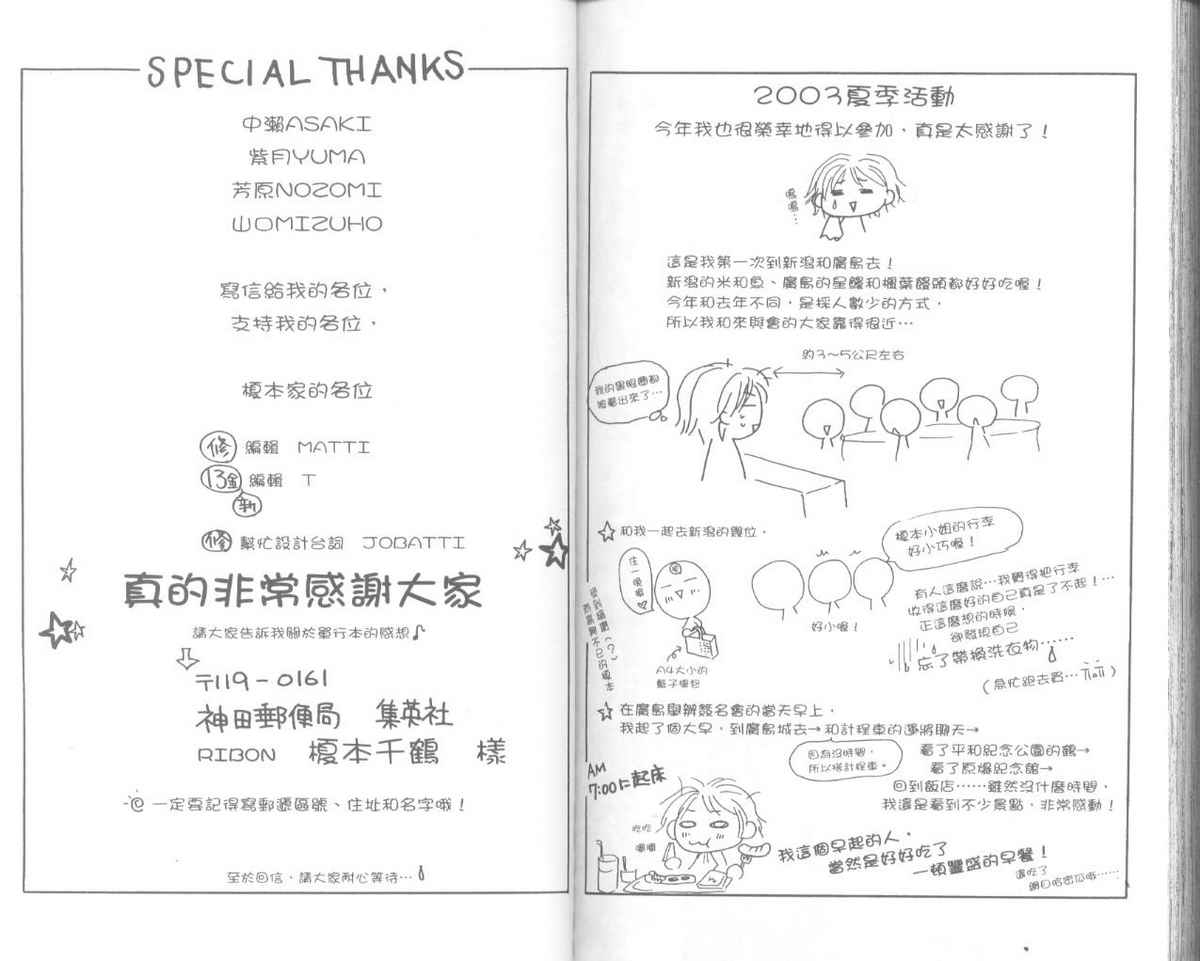 SPECIAL THANKS
中瀨ASAKI
紫月YUMA
芳原NOZOMI
山口MIZUHO
寫信給我的各位,
支持我的各位,
榎本家的各位
修 編輯 MATTI
13金 編輯 T
新
修 幫忙設計台詞 JOBATTI
真的非常感謝大家
請大家告訴我關於單行本的感想♪
〒119-0161
神田郵便局 集英社
RIBON 榎本千鶴 樣
一定要記得寫郵遞區號、住址和名字哦!
至於回信,請大家耐心等待…
2003夏季活動
今年我也很榮幸地得以參加,真是太感謝了!
嗚嗚…
這是我第一次到新潟和廣島去!
新潟的米和魚、廣島的星鰻和楓葉饅頭都好好吃喔!
今年和去年不同,是採人數少的方式,
所以我和來與會的大家靠得很近…
約3~5公尺左右
我的黑眼圈都
被看出來了…
☆和我一起去新潟的幾位,
榎本小姐的行李
好小巧喔!
住一晚喔♡
好小喔!
A4大小的
籃子提包
有人這麼說…我覺得把行李
收得這麼好的自己真是了不起!…
正這麼想的時候,
卻發現自己
忘了帶換洗衣物……
(急忙跑去買…)
☆在廣島舉辦簽名會的當天早上,
我起了個大早,到廣島城去→和計程車的運將聊天→
因為沒時間,
所以搭計程車。
看了平和紀念公園的鶴→
看了原爆紀念館→
回到飯店……雖然沒什麼時間,
我還是看到不少景點,非常感動!
AM
7:00に起床
吃吃
嚼嚼
我這個早起的人,
當然是好好吃了
一頓豐盛的早餐!
還吃了